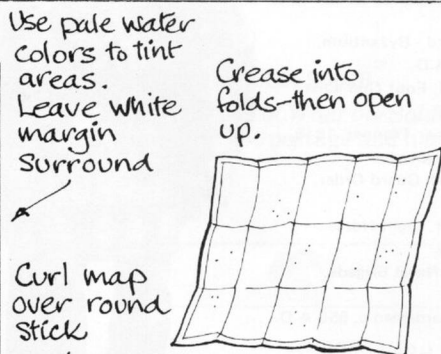 Use pale water
colors to tint
areas.
Leave white
margin
surround
Crease into
folds-then open
up.
Curl map
over round
stick